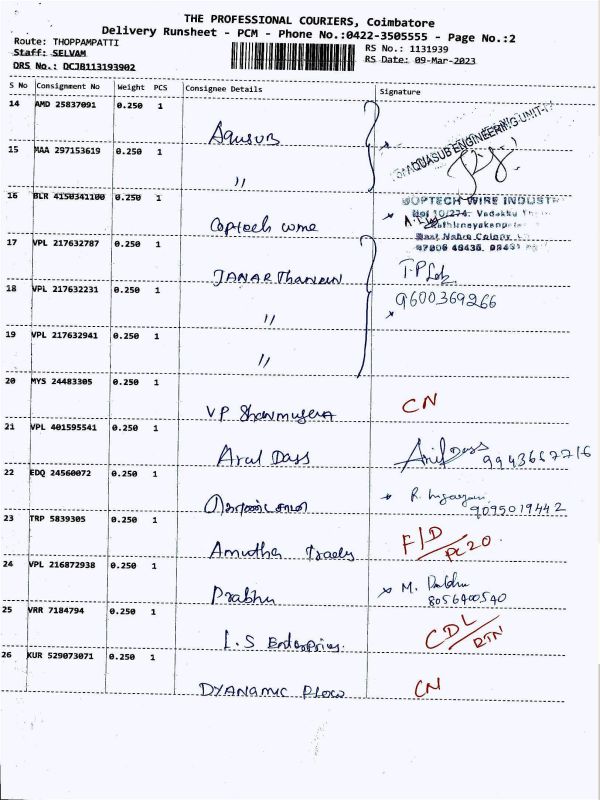 THE PROFESSIONAL COURIERS, Coimbatore
Delivery Runsheet - PCM - Phone No.:0422-3505555 - Page No.:2
Route: THOPPAMPATTI
Staff: SELVAM
DRS No.: DCJB113193902
RS No.: 1131939
RS Date: 09-Mar-2023
S No Consignment No Weight PCS Consignee Details Signature
14 AMD 25837091 0.250 1
Aqusub
AQUASUB ENGINEERING UNIT-
15 MAA 297153619 0.250 1
"
16 BLR 4150341100 0.250 1
Coptech wire
COPTECH WIRE INDUST
No: 10/274, Vadakku
East Nehru Colony
17 VPL 217632787 0.250 1
JANARThanan
T.P Lak
18 VPL 217632231 0.250 1
"
9600369266
19 VPL 217632941 0.250 1
"
20 MYS 24483305 0.250 1
VP Shanmugera CN
21 VPL 401595541 0.250 1
Arul Dass
9943667716
22 EDQ 24560072 0.250 1
9095019442
23 TRP 5839305 0.250 1
Amutha Traders F/D
PC20
24 VPL 216872938 0.250 1
Prabhu M. Prabhu
8056400540
25 VRR 7184794 0.250 1
L.S Enterprises. CDL/
RTN
26 KUR 529073071 0.250 1
DYANAMIC Flow CN